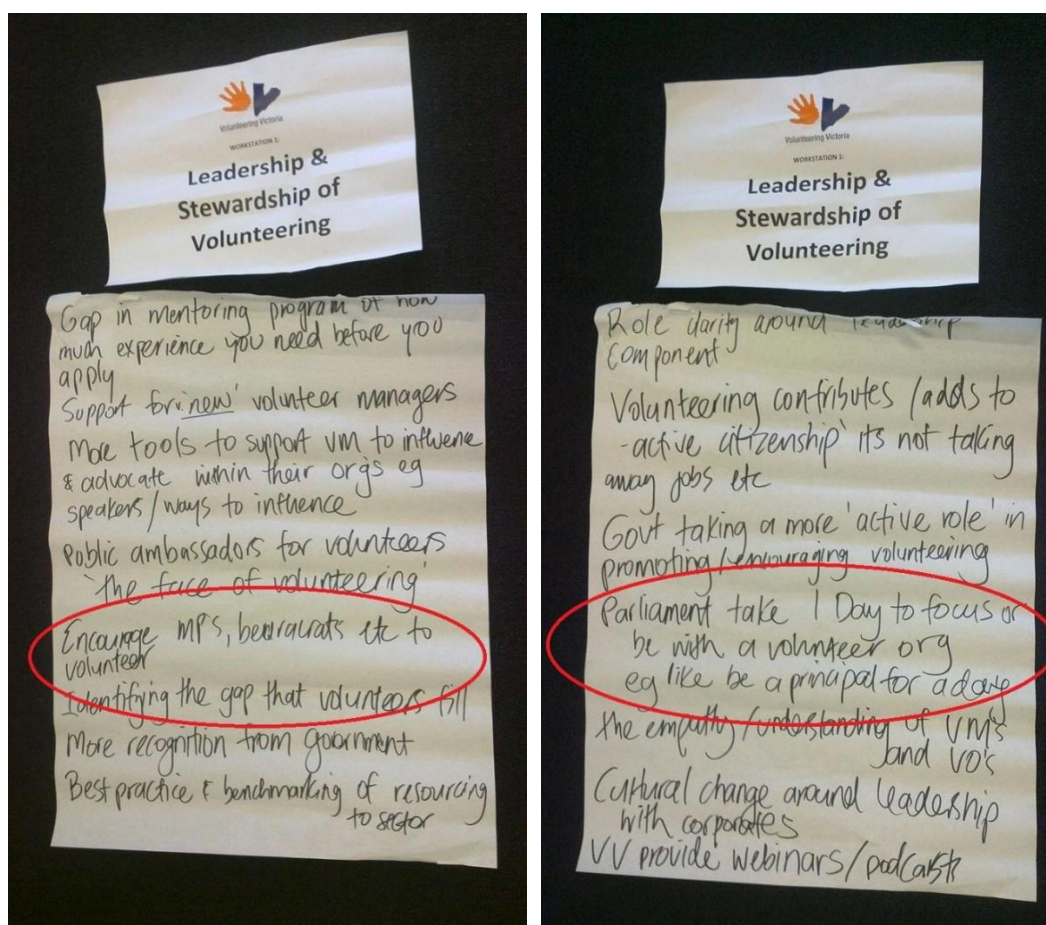 Volunteering Victoria
WORKSTATION 1:
Leadership &
Stewardship of
Volunteering
Gap in mentoring program of how
much experience you need before you
apply
Support for 'new' volunteer managers
More tools to support VM to influence
& advocate within their orgs eg
speakers/ways to influence
Public ambassadors for volunteers
'the face of volunteering'
Encourage MPs, beauracrats etc to
volunteer
Identifying the gap that volunteers fill
More recognition from goornment
Best practice & benchmarking of resourcing
to sector
Volunteering Victoria
WORKSTATION 1:
Leadership &
Stewardship of
Volunteering
Role clarity around leadership
component
Volunteering contributes /adds to
-active citizenship' its not taking
away jobs etc
Govt taking a more 'active role' in
promoting/encouraging volunteering
Parliament take 1 Day to focus or
be with a volunteer org
eg like be a principal for a day
the empathy/understanding of VM's
and VO's
Cultural change around leadership
with corporates
VV provide webinars/podcasts